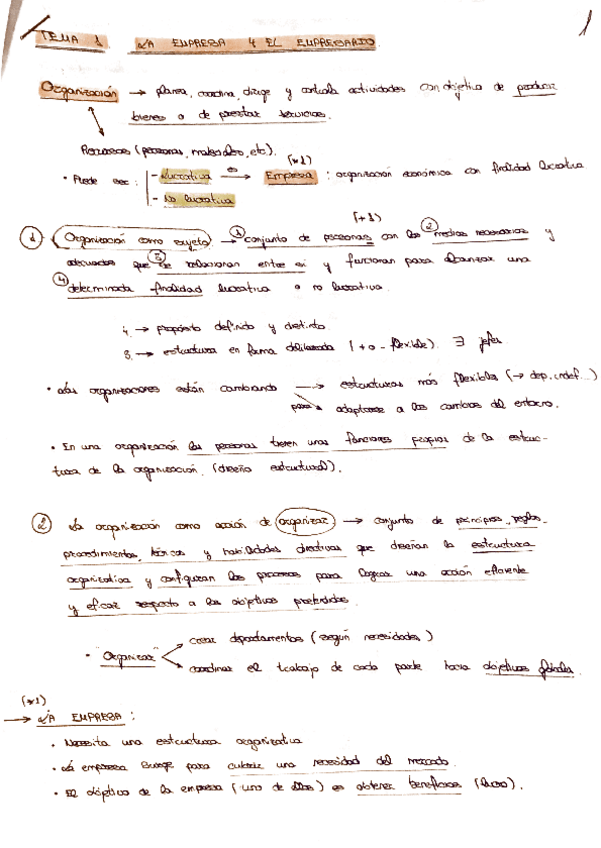 1
TEMA 1. LA EMPRESA Y EL EMPRESARIO.
Organización → planea, coordina, dirige y controla actividades con objetivo de producir
bienes o de prestar servicios.
Recursos (personas, materiales, etc).
(*1)
• Puede ser: - Lucrativa → Empresa : organización económica con finalidad lucrativa
- No lucrativa
(+1)
① Organización como sujeto → ① conjunto de personas con los ② medios necesarios y
adecuados que ③ se relacionan entre sí y funcionan para alcanzar una
④ determinada finalidad lucrativa o no lucrativa.
4. → propósito definido y distinto
3. → estructura en forma deliberada (+ o - flexible). ∃ jefes
• Las organizaciones están cambiando → estructuras más flexibles (→ dep. indef...)
para adaptarse a los cambios del entorno.
• En una organización las personas tienen unas funciones propias de la estruc-
tura de la organización. (diseño estructural).
② La organización como acción de organizar → conjunto de principios, reglas,
procedimientos, técnicas y habilidades directivas que diseñan la estructura
organizativa y configuran los procesos para lograr una acción eficiente
y eficaz respecto a los objetivos pretendidos.
• "Organizar" crear departamentos (según necesidades)
coordinar el trabajo de cada parte hacia objetivos globales.
(*1)
→ LA EMPRESA :
• Necesita una estructura organizativa
• La empresa surge para cubrir una necesidad del mercado.
• El objetivo de la empresa (uno de ellos) es obtener beneficios (lucro).